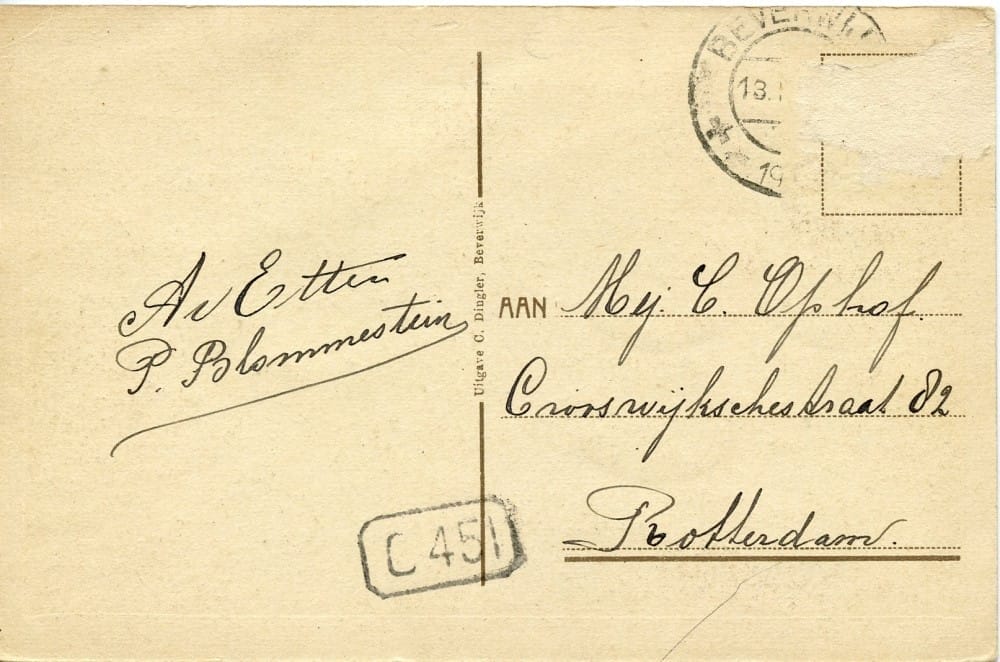 BEVERWIJ
13.
19
A v Etten
P. Blommestein
Uitgave C. Dingler, Beverwijk
AAN Mej. C. Ophof.
Crooswijkschestraat 82
Rotterdam.
C 451